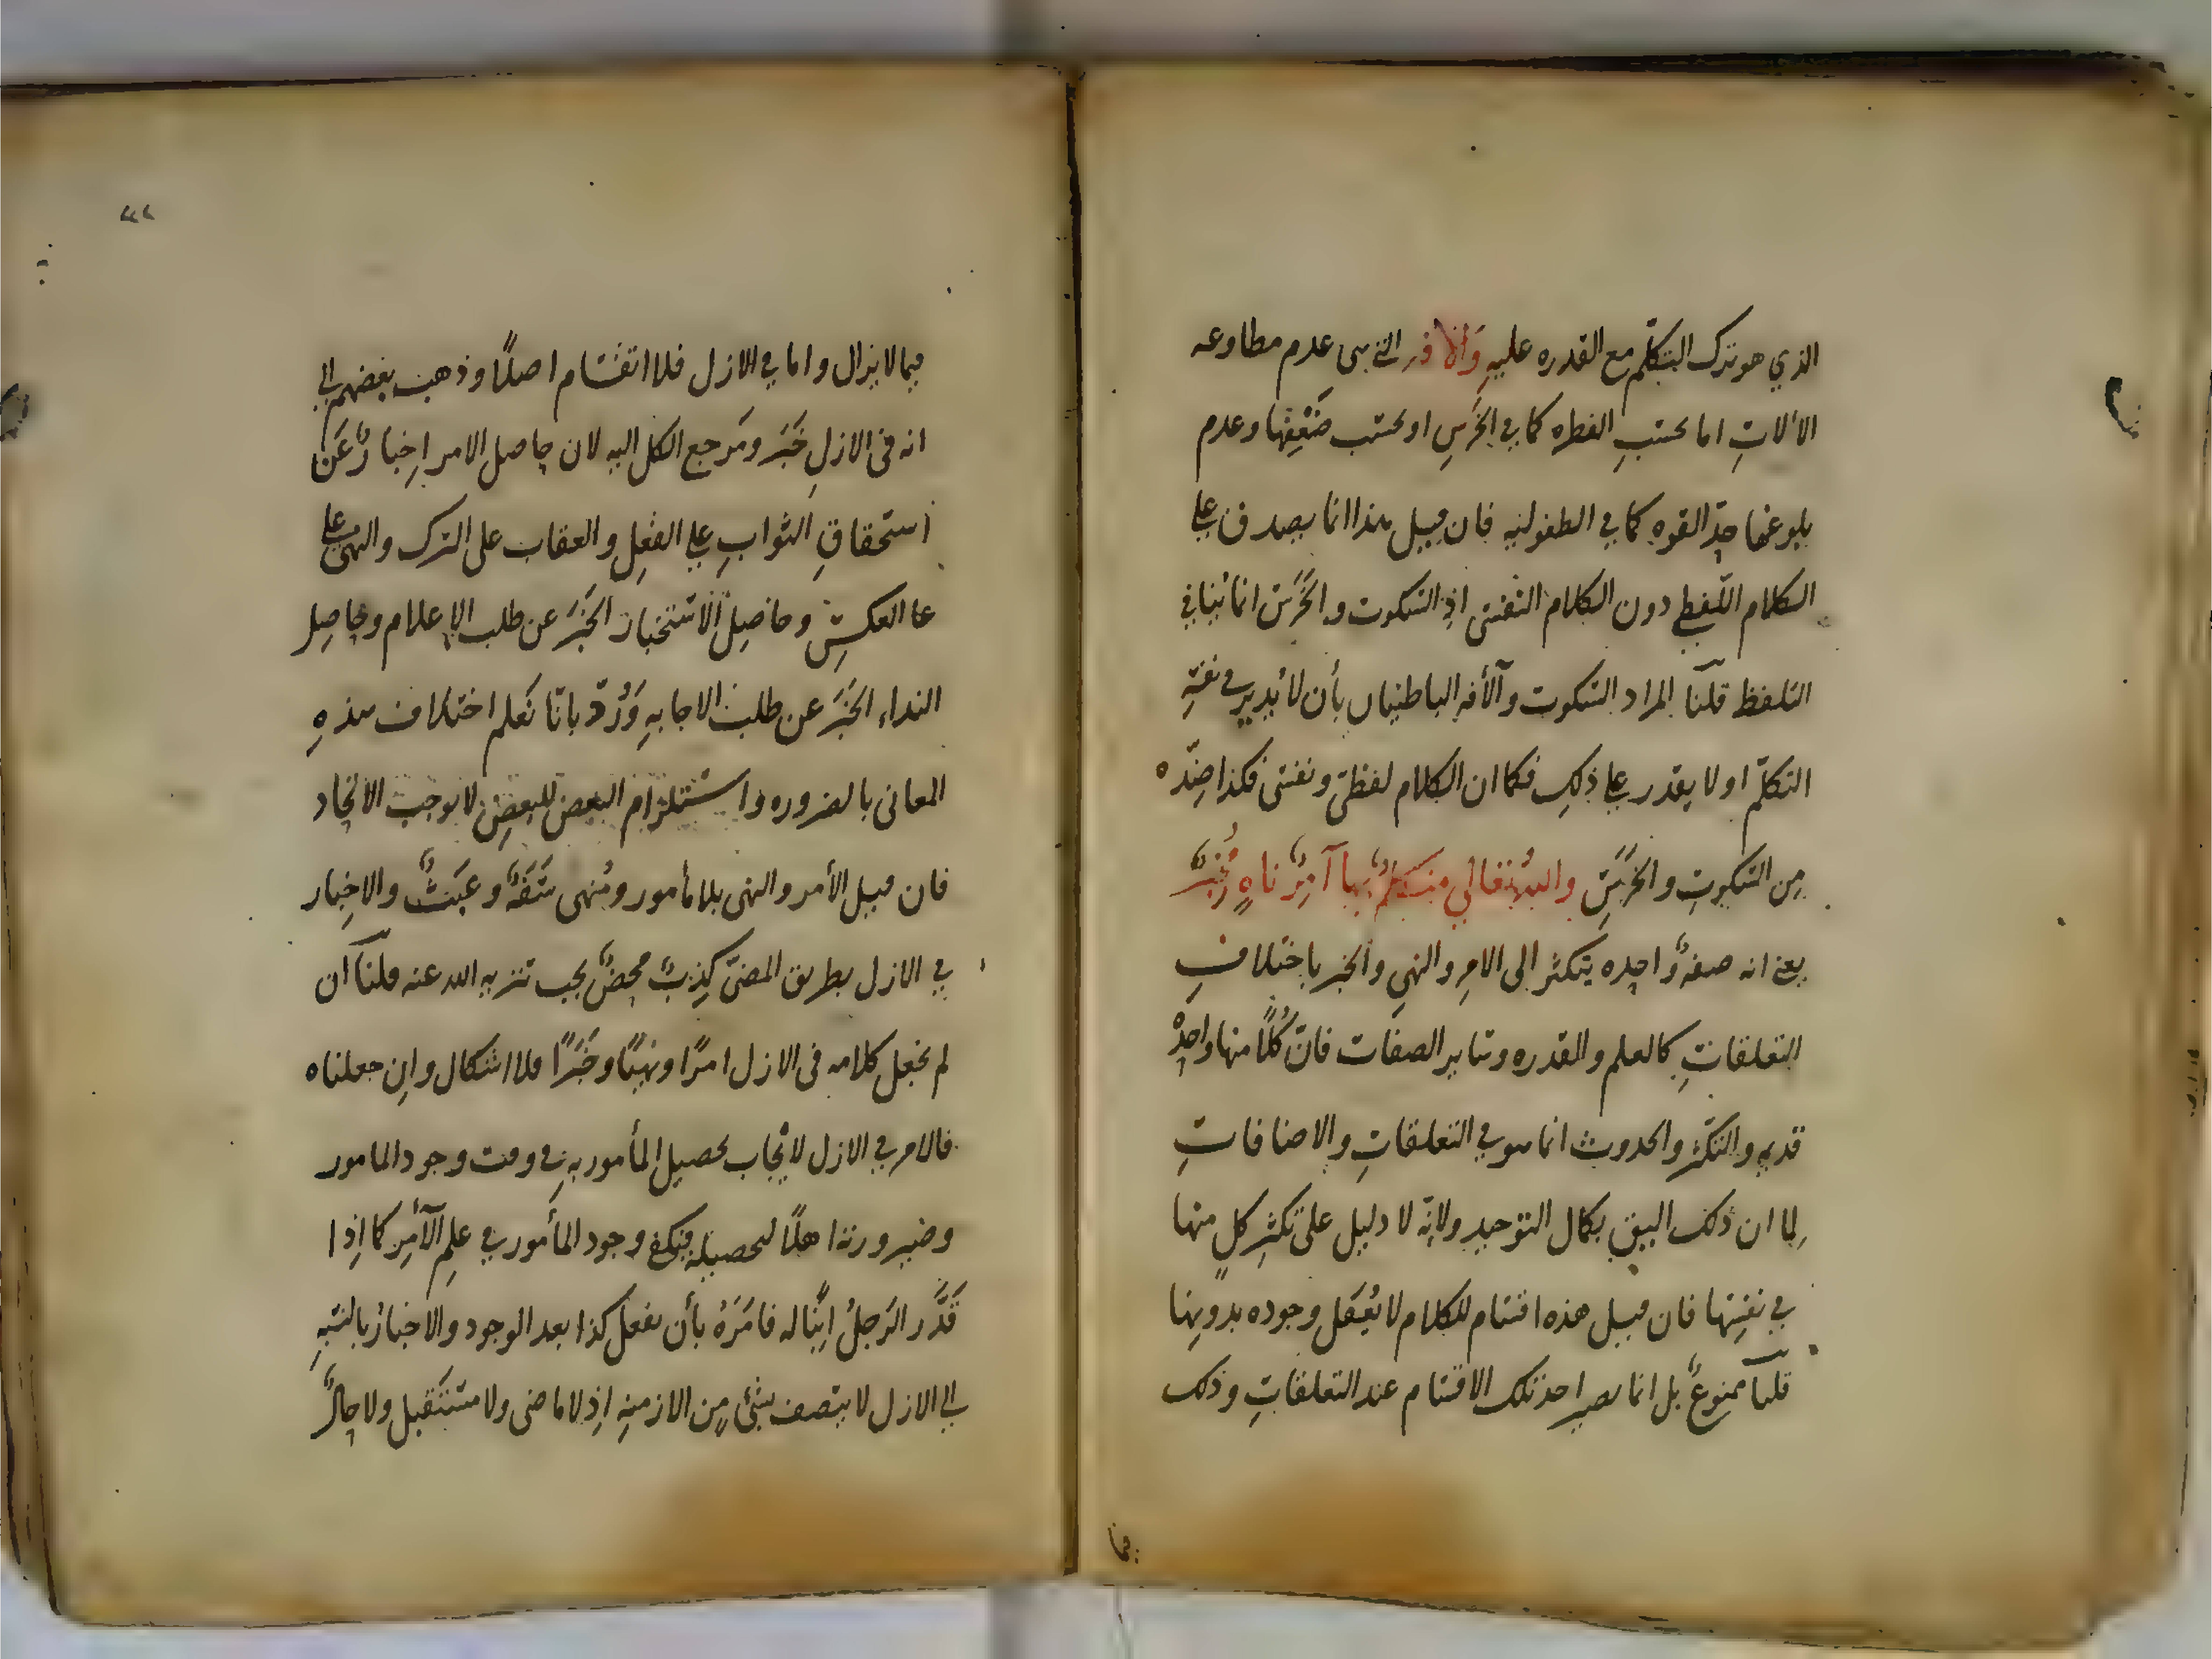 الذي هو ترك التكلّم مع القدره عليهِ وَالآفه التي هى عدم مطاوعه
الآلاتِ اما بحسبِ الفطره كما في الخَرسِ او بحسب ضَعْفِها وعدم
بلوغها حدّ القوه كما في الطفوليه فان قيل هذا انما يصدق علي
الكلام اللّفظي دون الكلام النّفسى اذِ السّكوت والخَرَسَ انما يُنافي
التلفظ قلنا المراد السّكوت والأفه الباطنيان بأن لا يُدير في نفسِهِ
التكلّم او لا يقدر علي ذلك فكما ان الكلام لفظىّ ونفسى فكذا ضِدّه
مِن السّكوتِ والخَرَسِ والله تعالي متكلمٌ بها آمِرٌ ناهٍ مُخْبِرٌ
يعني انه صفهٌ واحده يتكثر الى الامِرِ والنهىِ والخبر باختلافِ
التعلقاتِ كالعلم والقدره وسائر الصفات فانّ كُلًّا منها واحدٌ
قديم والتكثّر والحدوث انما هو في التعلقاتِ والاضافاتِ
لِما ان ذلك اليق بكمال التوحيد ولانّه لا دليل على تكثرِ كلٍ منها
في نفسِها فان قيل هذه اقسام للكلام لا يُعقل وجوده بدونِها
قلنا ممنوعٌ بل انما يصير احد تلك الاقسام عند التعلقاتِ وذلك
فيما
فيما لا يزال واما في الازل فلا انقسام اصلًا وذهب بعضهم الي
انه فى الازلِ خَبَر ومَرجع الكل اليه لان حاصل الامر اِخبارٌ عَن
استحقاقِ الثوابِ علي الفعِلِ والعقاب على الترك والنهى علي
عا العكسِ وحاصِل الاستخبار الخَبَر عن طلب الاِعلام وحاصِل
النداء الخَبَرَ عن طلب الاجابهِ وَرُدّ بانّا نَعلم اختلاف هذهِ
المعانى بالضروره واستلزام البعض للبعضِ لا يوجب الاتحاد
فان قيل الأمر والنهى بلا مأمور ومَنهى سَفَهٌ وعبَثٌ والاخِبار
في الازل بطريق المضىّ كذِبٌ محضٌ يجب تنزيه الله عنه قلنا ان
لم يجعل كلامه فى الازل امرًا ونهيًا وخَبَرًا فلا اشكال واِن جعلناه
فالامر في الازل لايجاب تحصيل المأمور بهِ في وقت وجود المامور
وصيرورته اهلًا لتحصيله فيكفي وجود المأمور في علِمِ الآمِر كما اِذا
قَدَّر الرَجلُ اِبنًا له فامَرَهُ بأن يفعل كذا بعد الوجود والاخبارُ بالنّسبهِ
الي الازل لا يتصف بشئ مِن الازمنهِ اِذ لا ماضى ولا مستقبل ولا حالَ